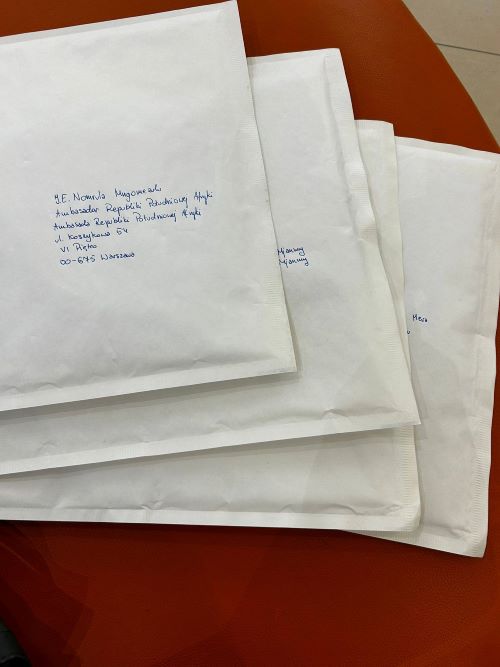 J.E. Nomvula Mngomezulu
Ambasador Republiki Południowej Afryki
Ambasada Republiki Południowej Afryki
ul. Koszykowa 54
VI Piętro
00-675 Warszawa
Mianmy
Mianmy